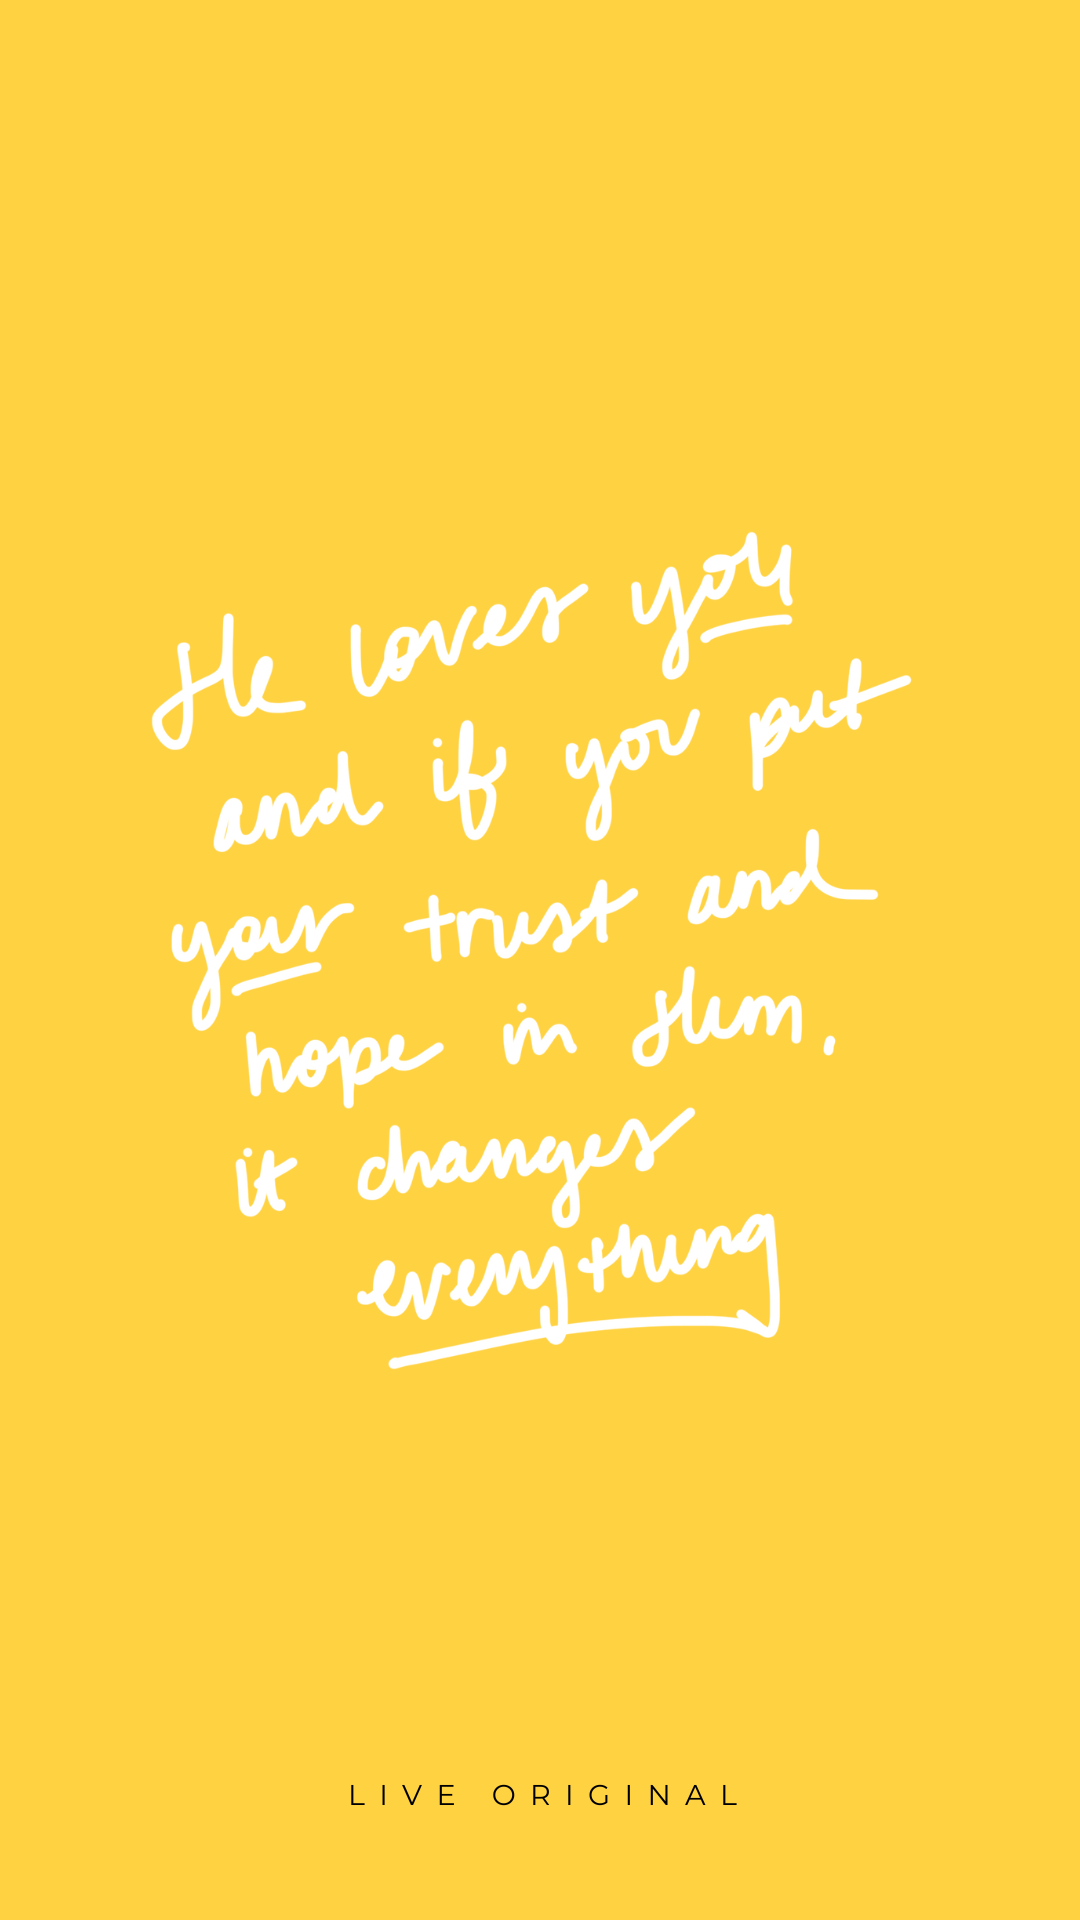 He loves you
and if you put
your trust and
hope in Him,
it changes
everything
LIVE ORIGINAL